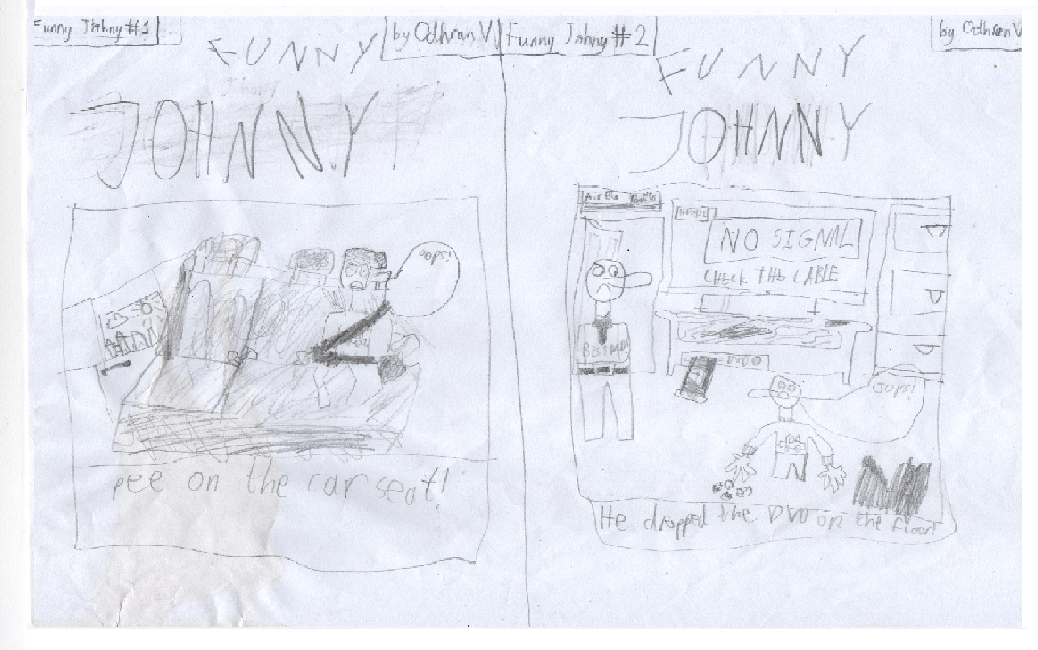 Funny Johnny #1
by Odhran V.
FUNNY
JOHNNY
oops!
pee on the car seat!
Funny Johnny #2
by Odhran V
FUNNY
JOHNNY
HDMI
NO SIGNAL
CHECK THE CABLE
BATMAN
DVD
oops!
He dropped the DVD on the floor!